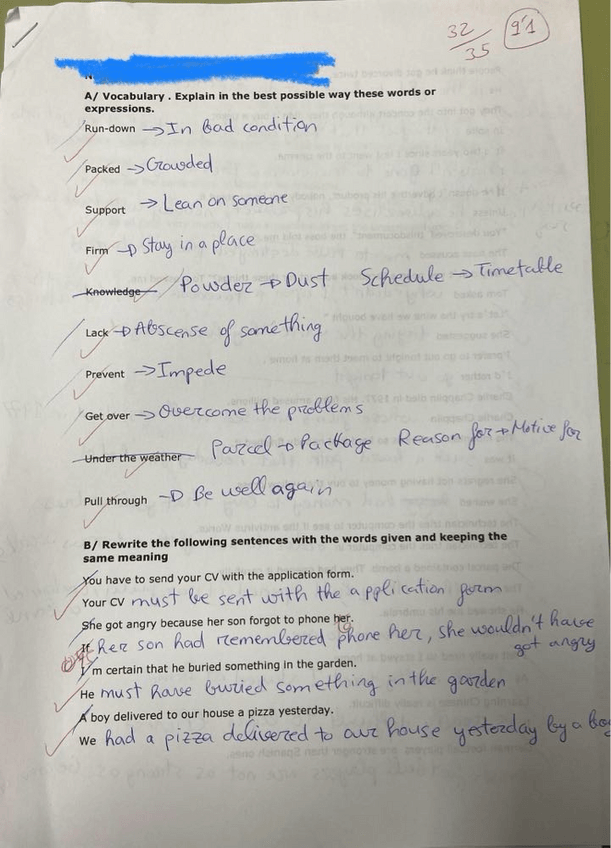 32/35 9'1
N
A/ Vocabulary . Explain in the best possible way these words or
expressions.
Run-down → In bad condition
Packed → Crowded
Support → Lean on someone
Firm → Stay in a place
Knowledge Powder → Dust Schedule → Timetable
Lack → Abscense of something
Prevent → Impede
Get over → Overcome the problems
Under the weather Parcel → Package Reason for → Motive for
Pull through → Be well again
B/ Rewrite the following sentences with the words given and keeping the
same meaning
You have to send your CV with the application form.
Your CV must be sent with the application form
She got angry because her son forgot to phone her.
If her son had remembered phone her, she wouldn't have
got angry
I'm certain that he buried something in the garden.
He must have buried something in the garden
A boy delivered to our house a pizza yesterday.
We had a pizza delivered to our house yesterday by a boy